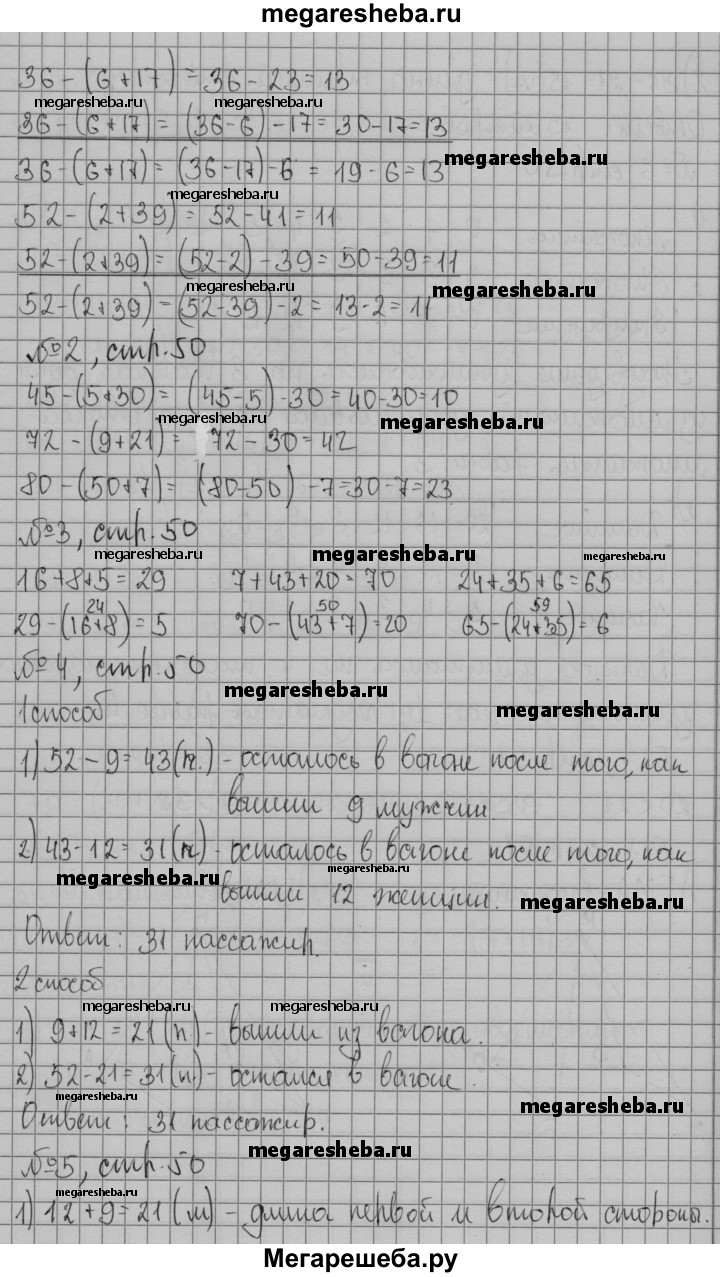 megaresheba.ru
36 - (6+17) = 36 - 23 = 13
megaresheba.ru megaresheba.ru
36 - (6+17) = (36-6) - 17 = 30-17 = 13
megaresheba.ru
36 - (6+17) = (36-17) - 6 = 19 - 6 = 13
megaresheba.ru
52 - (2+39) = 52 - 41 = 11
52 - (2+39) = (52-2) - 39 = 50-39 = 11
megaresheba.ru megaresheba.ru
52 - (2+39) = (52-39) - 2 = 13-2 = 11
№2, стр. 50
45 - (5+30) = (45-5) - 30 = 40-30 = 10
megaresheba.ru megaresheba.ru
72 - (9+21) = 72 - 30 = 42
80 - (50+7) = (80-50) - 7 = 30-7 = 23
№3, стр. 50
megaresheba.ru megaresheba.ru megaresheba.ru
16+8+5 = 29 7+43+20 = 70 24+35+6 = 65
24 50 59
29 - (16+8) = 5 70 - (43+7) = 20 65 - (24+35) = 6
№4, стр. 50
megaresheba.ru
1 способ
megaresheba.ru
1) 52 - 9 = 43 (п.) - осталось в вагоне после того, как
вышли 9 мужчин.
2) 43 - 12 = 31 (п.) - осталось в вагоне после того, как
megaresheba.ru megaresheba.ru
вышли 12 женщин. megaresheba.ru
Ответ: 31 пассажир.
2 способ
megaresheba.ru megaresheba.ru
1) 9+12 = 21 (п.) - вышли из вагона.
2) 52-21 = 31 (п.) - остался в вагоне.
megaresheba.ru megaresheba.ru
Ответ: 31 пассажир.
№5, стр. 50 megaresheba.ru
megaresheba.ru
1) 12 + 9 = 21 (м) - длина первой и второй стороны.
Мегарешеба.ру